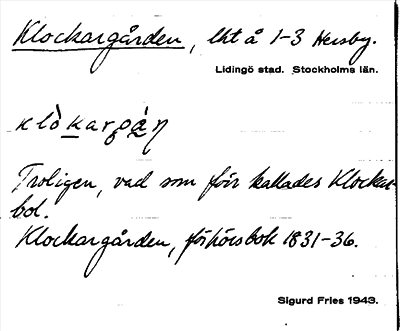 Klockargården, lht å 1-3 Hersby.
Lidingö stad. Stockholms län.
Troligen, vad som förr kallades Klockar-
bol.
Klockargården, förhörsbok 1831-36.
Sigurd Fries 1943.